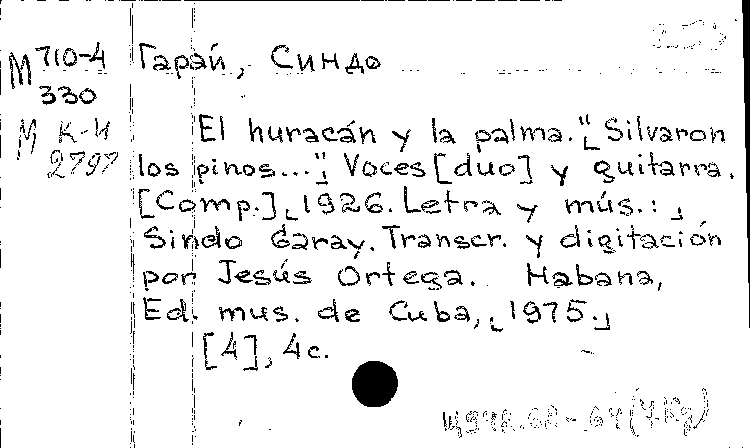 М 710-4
330
М К-И
2797
Гарай, Синдо
El huracán y la palma. "[Silvaron
los pinos..."] Voces [duo] y guitarra.
[Comp.] [1926. Letra y mús.:]
Sindo Garay. Transcr. y digitación
por Jesús Ortega. Habana,
Ed. mus. de Cuba, [1975.]
[4], 4 с.